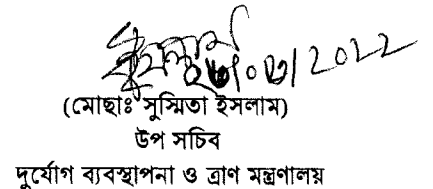 ২৩/০৬/2022
(মোছাঃ সুস্মিতা ইসলাম)
উপ সচিব
দুর্যোগ ব্যবস্থাপনা ও ত্রাণ মন্ত্রণালয়